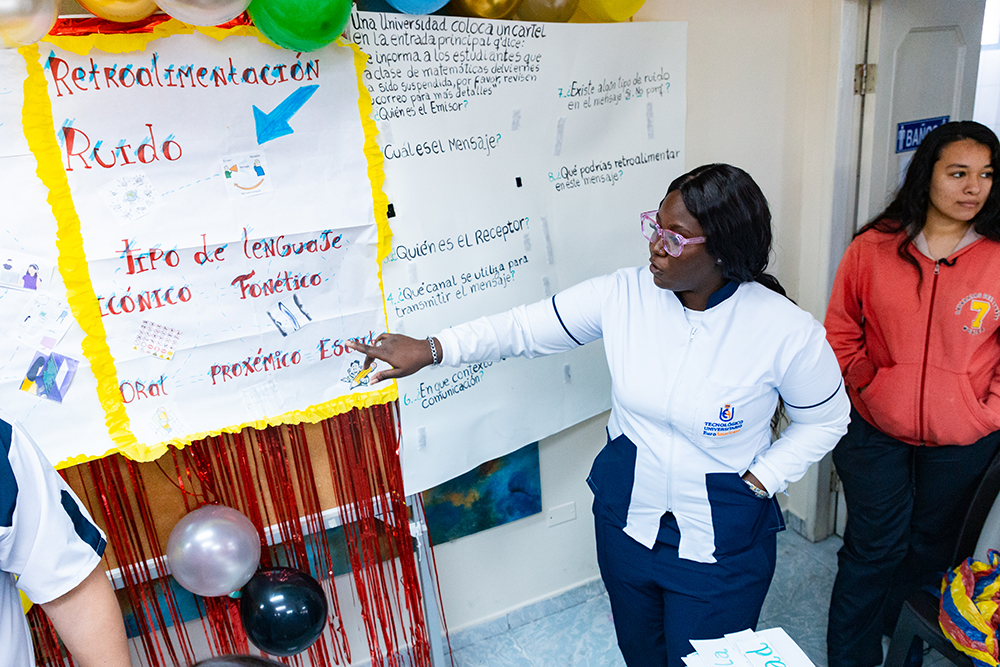 Retroalimentación
Ruido
tipo de lenguaje
icónico Fonético
oral proxémico
Una Universidad coloca un cartel
en la entrada principal q' dice:
informa a los estudiantes que
clase de matemáticas del viernes
a sido suspendida, por favor, revisen
correo para más detalles"
¿Quién es el Emisor?
Cuál es el Mensaje?
¿Quién es el Receptor?
4. ¿Qué canal se utiliza para
transmitir el mensaje?
6. ¿En que contexto
comunicación?
7. ¿Existe algún tipo de ruido
en el mensaje Si - No
8. ¿Qué podrías retroalimentar
en este mensaje?
BAÑOS
TECNOLÓGICO
UNIVERSITARIO
7